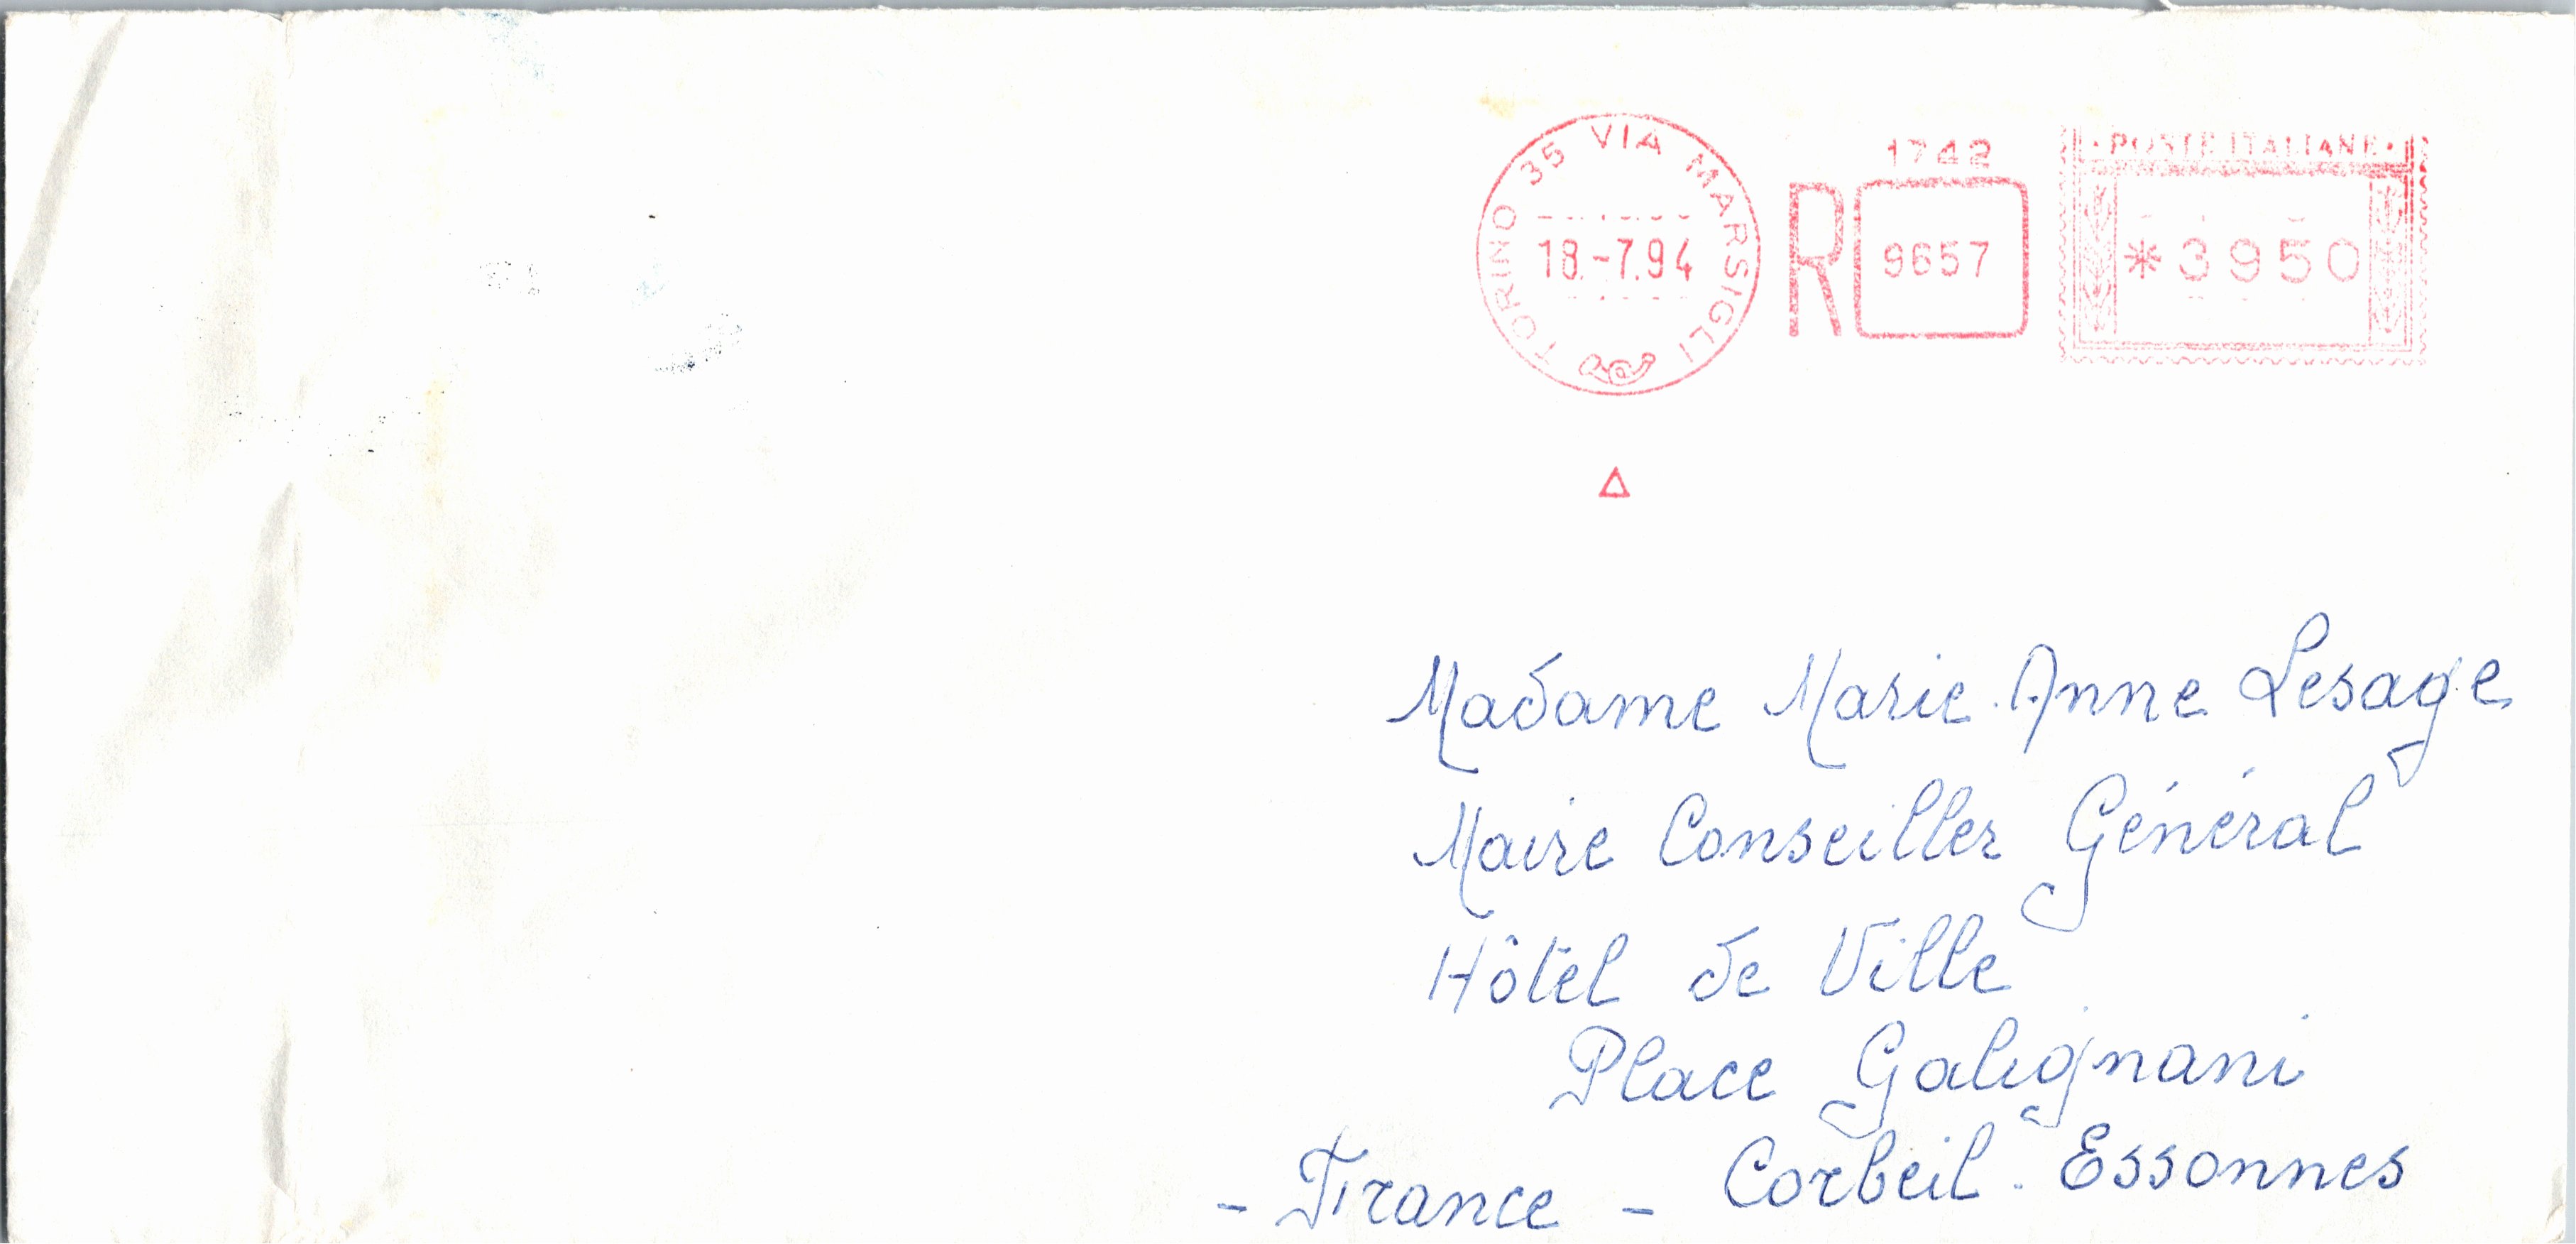 TORINO 35 VIA MARSIGLI
18.-7.94
1742
R 9657
· POSTE ITALIANE ·
*3950
Madame Marie-Anne Lesage
Maire Conseiller Général
Hôtel de Ville
Place Galignani
- France - Corbeil-Essonnes